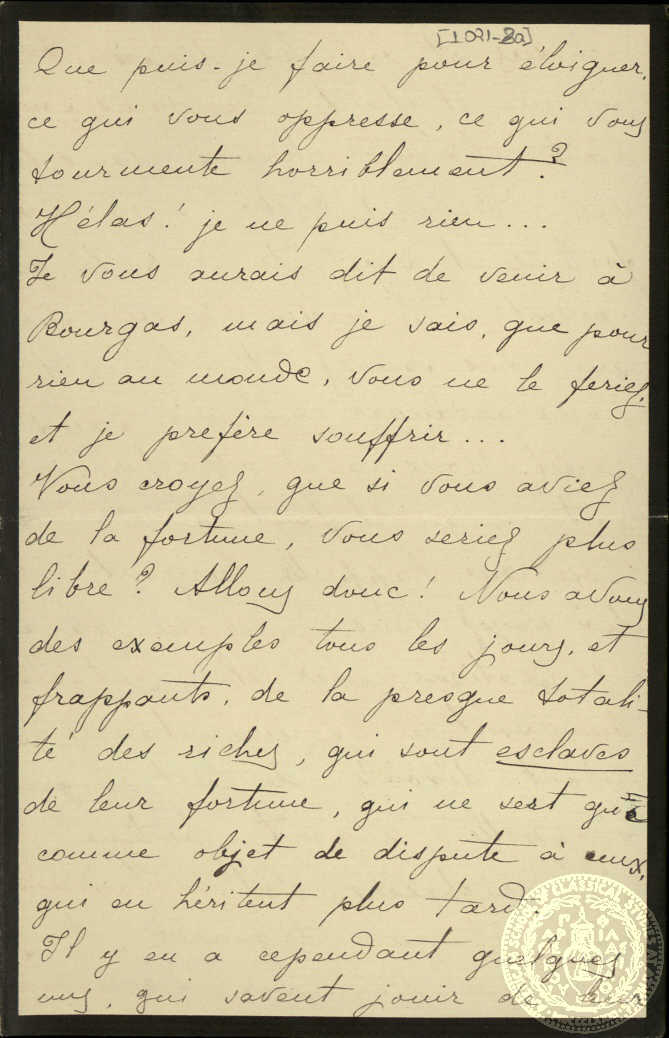 [1021-8a]
Que puis-je faire pour éloigner,
ce qui vous oppresse, ce qui vous
tourmente horriblement?
Hélas! je ne puis rien...
Je vous aurais dit de venir à
Bourgas, mais je sais, que pour
rien au monde, vous ne le feriez,
et je prefère souffrir...
Vous croyez, que si vous aviez
de la fortune, vous seriez plus
libre? Allons donc! Nous avons
des exemples tous les jours, et
frappants, de la presque totali-
té des riches, qui sont esclaves
de leur fortune, qui ne sert que
comme objet de dispute à eux,
qui en héritent plus tard.
Il y en a cependant quelques
uns, qui savent jouir de leur